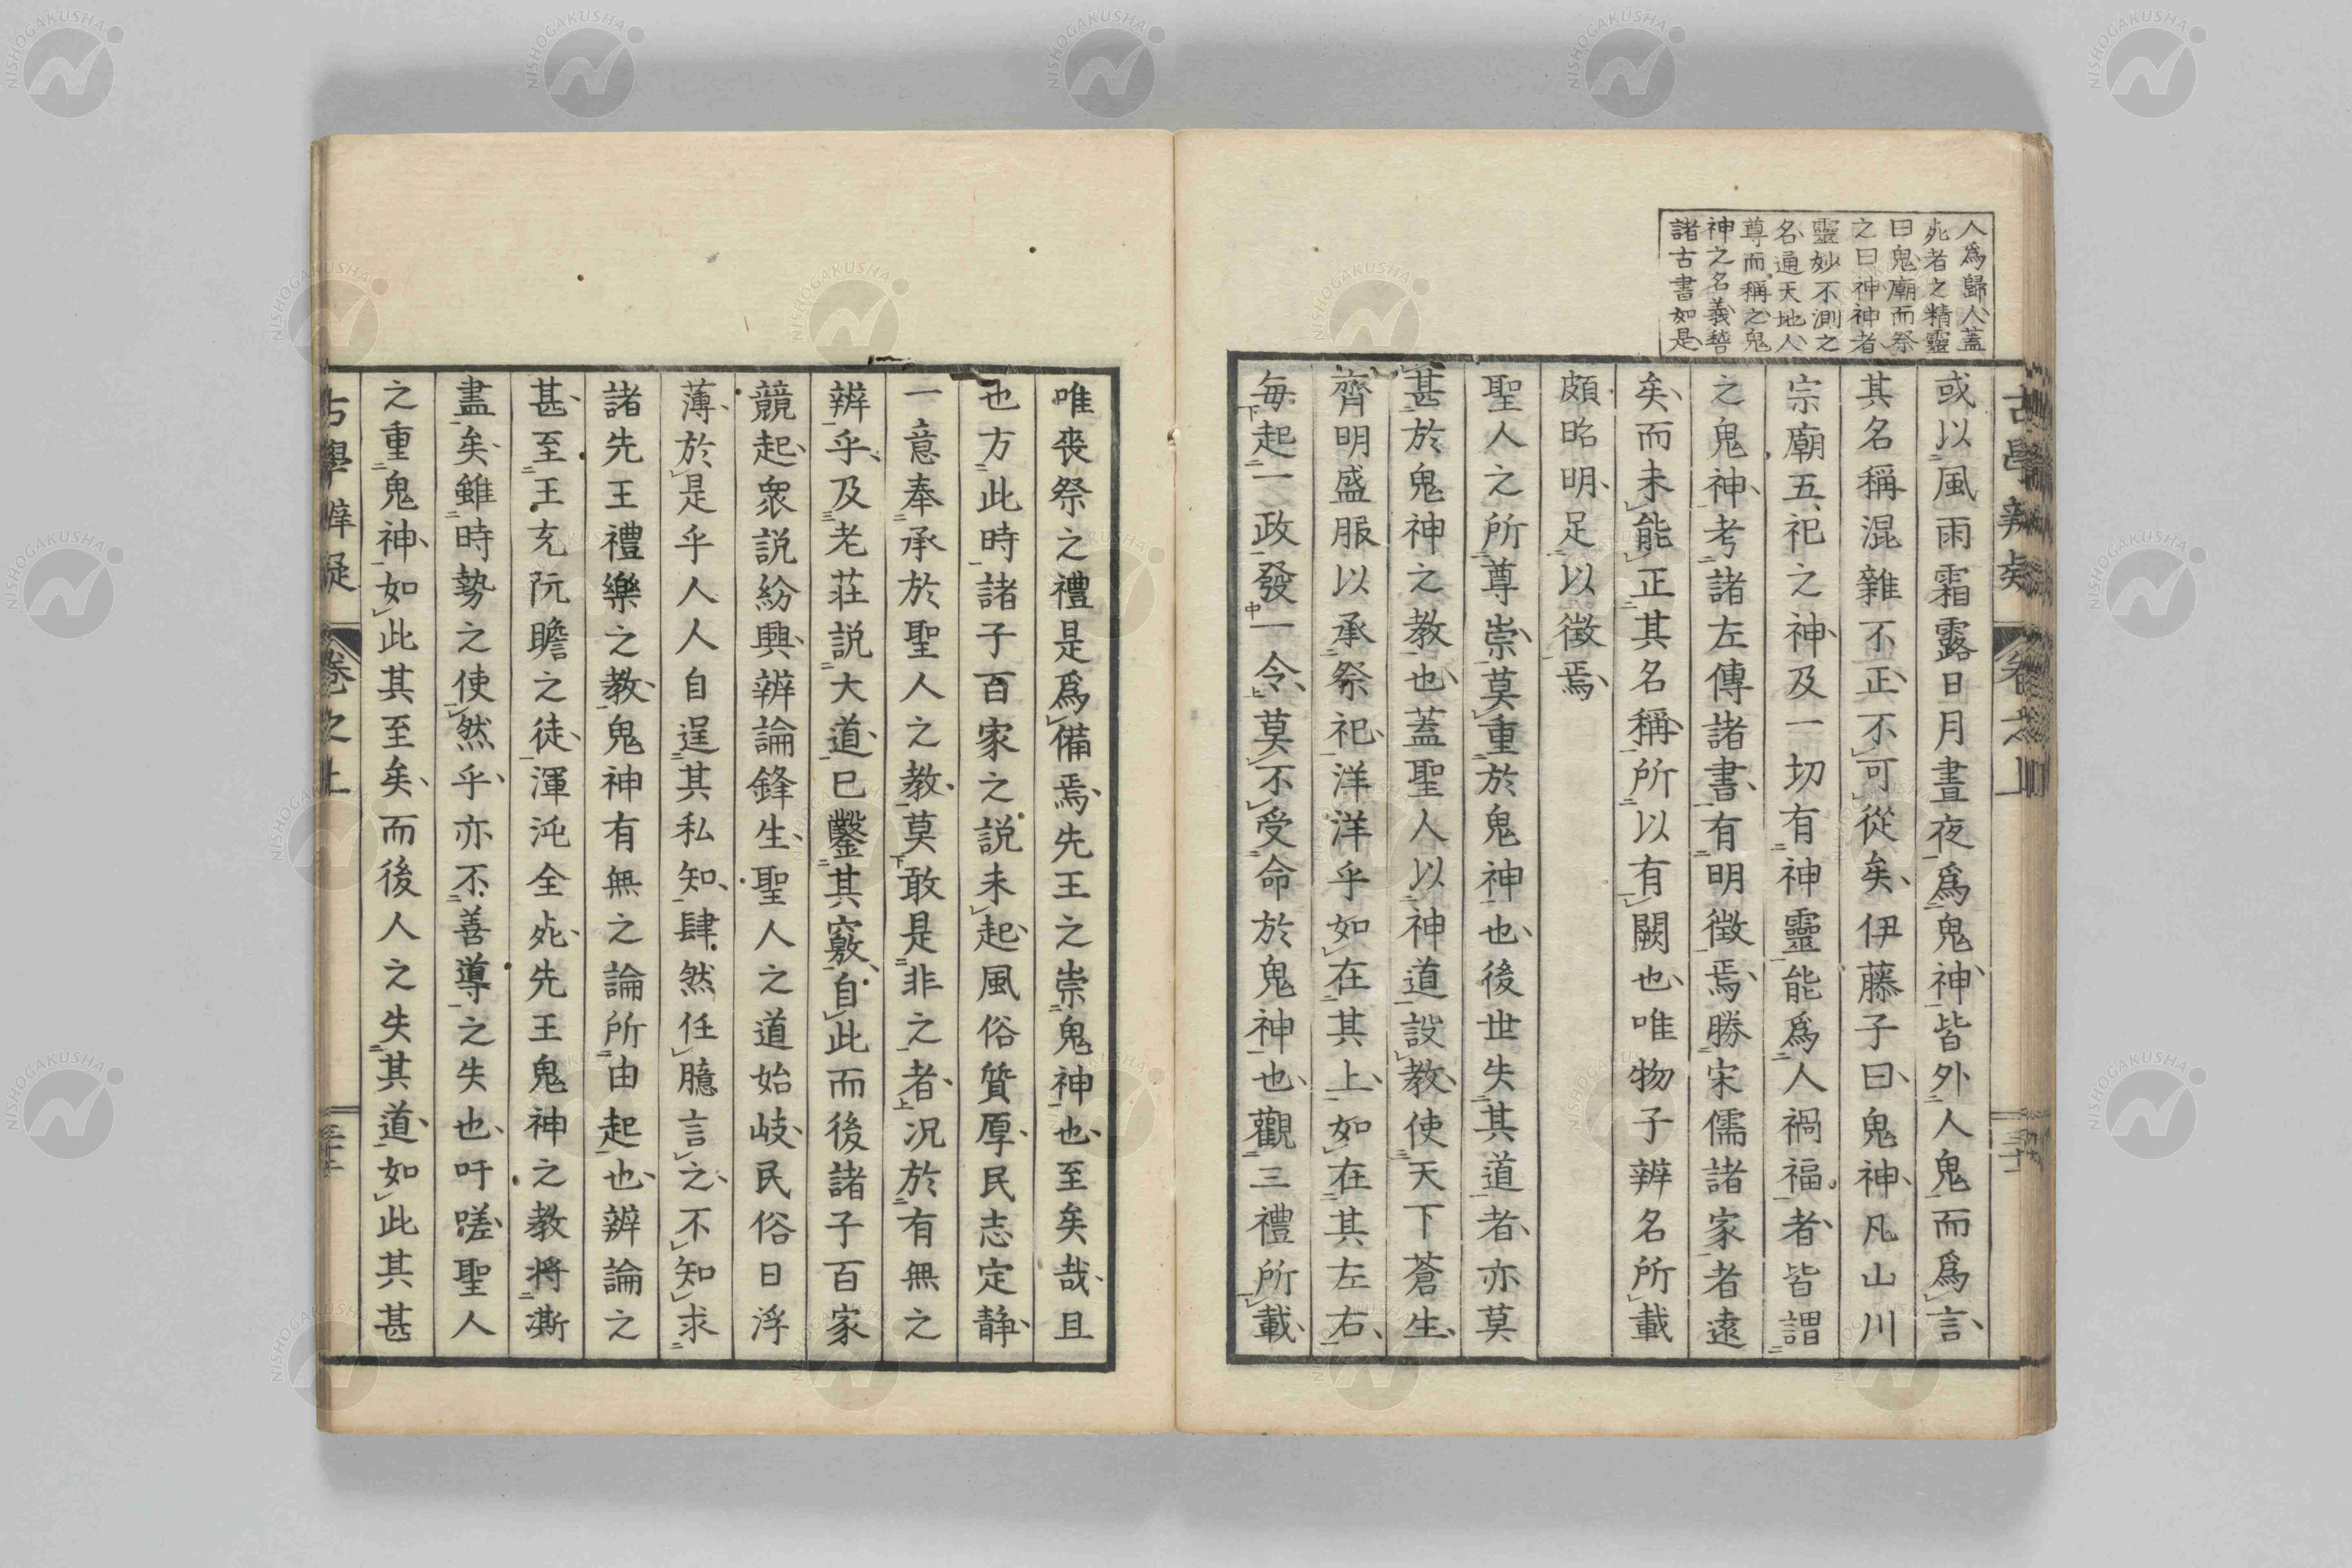 人爲歸人蓋
死者之精靈
曰鬼廟而祭
之曰神神者
靈妙不測之
名通天地人
尊而稱之鬼
神之名義
諸古書如是
卷之上
或以風雨霜露日月晝夜爲鬼神皆外人鬼而爲言
其名稱混雜不正不可從矣伊藤子曰鬼神凡山川
宗廟五祀之神及一切有神靈能爲人禍福者皆謂
之鬼神考諸左傳諸書有明徵焉勝宋儒諸家者遠
矣而未能正其名稱所以有闕也唯物子辨名所載
頗昭明足以徵焉
聖人之所尊崇莫重於鬼神也後世失其道者亦莫
甚於鬼神之教也蓋聖人以神道設教使天下蒼生
齊明盛服以承祭祀洋洋乎如在其上如在其左右
每起一政發一令莫不受命於鬼神也觀三禮所載
唯喪祭之禮是爲備焉先王之崇鬼神也至矣哉且
也方此時諸子百家之説未起風俗質厚民志定静
一意奉承於聖人之教莫敢是非之者况於有無之
辨乎及老莊説大道已鑿其竅自此而後諸子百家
競起衆説紛興辨論鋒生聖人之道始岐民俗日浮
薄於是乎人人自逞其私知肆然任臆言之不知求
諸先王禮樂之教鬼神有無之論所由起也辨論之
甚至王充阮瞻之徒渾沌全死先王鬼神之教將澌
盡矣雖時勢之使然乎亦不善導之失也吁嗟聖人
之重鬼神如此其至矣而後人之失其道如此其甚
古學辨疑 卷之上
NISHOGAKUSHA